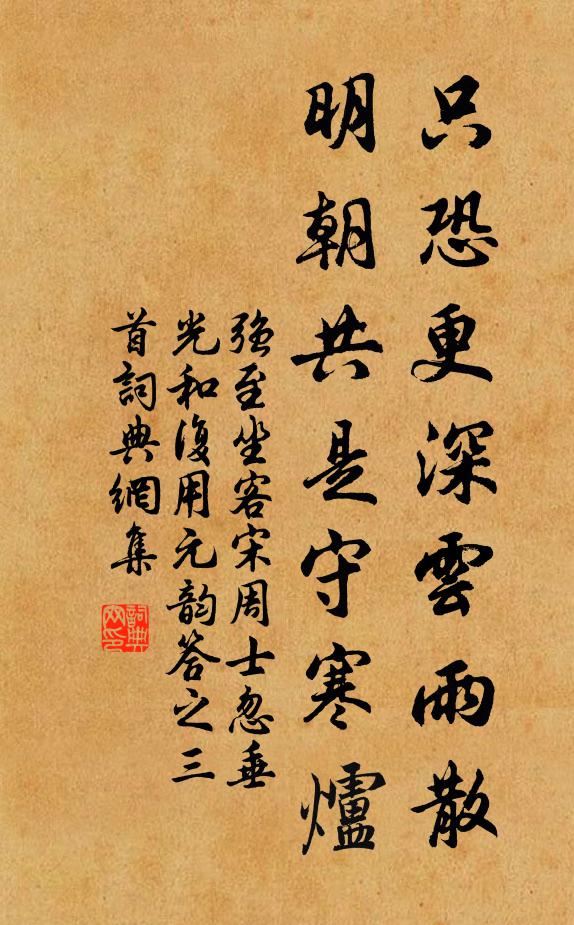 只恐更深雲雨散
明朝共是守寒爐
強至坐客宋周士忽垂
光和復用元韵答之三
首詞典網集
詞典
网印